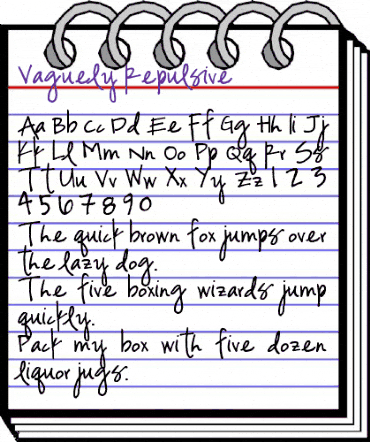 Vaguely Repulsive
Aa Bb Cc Dd Ee Ff Gg Hh Ii Jj
Kk Ll Mm Nn Oo Pp Qq Rr Ss
Tt Uu Vv Ww Xx Yy Zz 1 2 3
4 5 6 7 8 9 0
The quick brown fox jumps over
the lazy dog.
The five boxing wizards jump
quickly.
Pack my box with five dozen
liquor jugs.